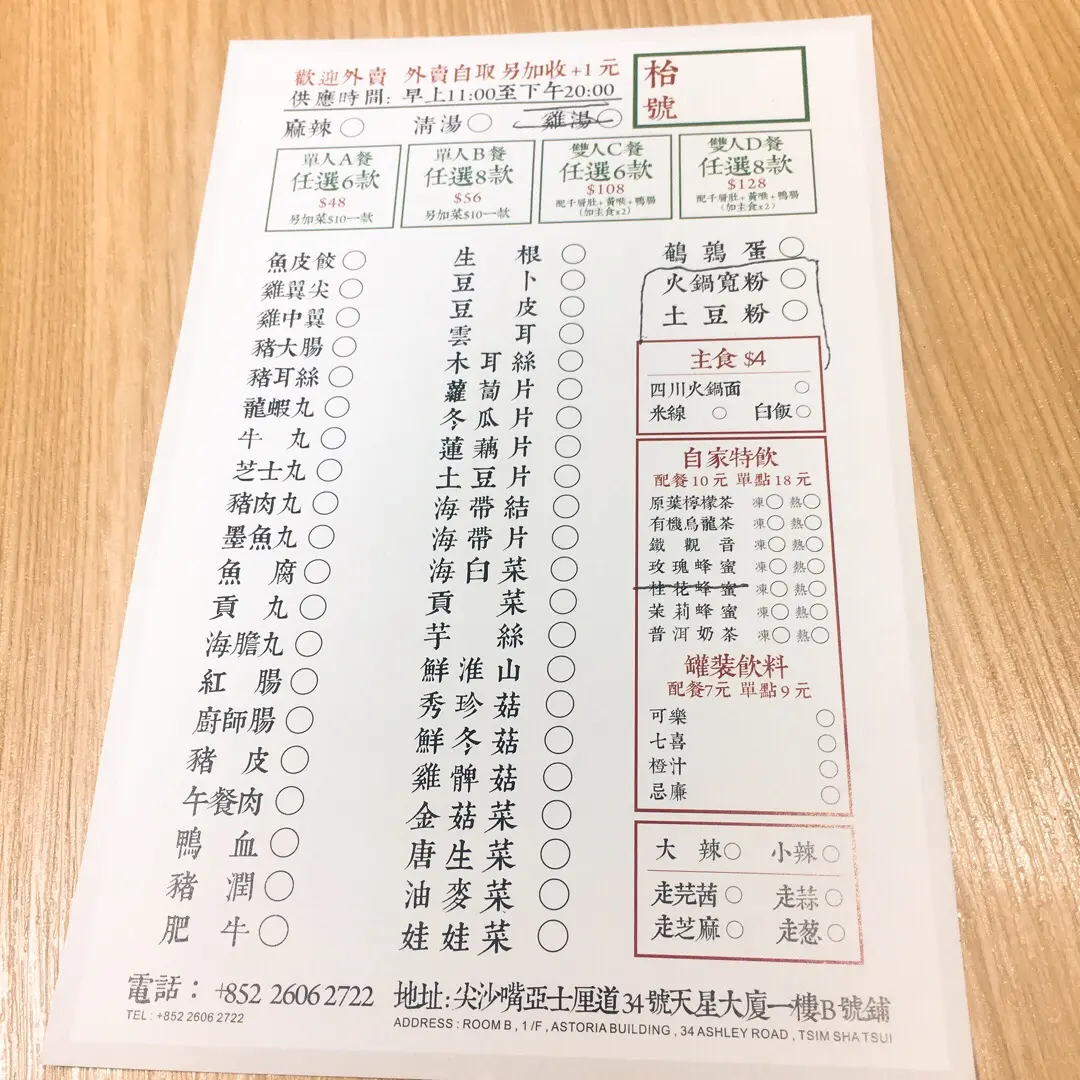 歡迎外賣 外賣自取另加收+1元
供應時間: 早上11:00至下午20:00
枱號
麻辣 清湯 雞湯
單人A餐
任選6款
$48
另加菜$10一款
單人B餐
任選8款
$56
另加菜$10一款
雙人C餐
任選6款
$108
配千層肚+黃喉+鴨腸
(加主食x2)
雙人D餐
任選8款
$128
配千層肚+黃喉+鴨腸
(加主食x2)
魚皮餃
雞翼尖
雞中翼
豬大腸
豬耳絲
龍蝦丸
牛丸
芝士丸
豬肉丸
墨魚丸
魚腐
貢丸
海膽丸
紅腸
廚師腸
豬皮
午餐肉
鴨血
豬潤
肥牛
生根
豆卜
豆皮
雲耳
木耳絲
蘿蔔片
冬瓜片
蓮藕片
土豆片
海帶結
海帶片
海白菜
貢菜
芋絲
鮮淮山
秀珍菇
鮮冬菇
雞髀菇
金菇菜
唐生菜
油麥菜
娃娃菜
鵪鶉蛋
火鍋寬粉
土豆粉
主食 $4
四川火鍋面
米線 白飯
自家特飲
配餐10元 單點18元
原葉檸檬茶 凍 熱
有機烏龍茶 凍 熱
鐵觀音 凍 熱
玫瑰蜂蜜 凍 熱
桂花蜂蜜 凍 熱
茉莉蜂蜜 凍 熱
普洱奶茶 凍 熱
罐裝飲料
配餐7元 單點9元
可樂
七喜
橙汁
忌廉
大辣 小辣
走芫茜 走蒜
走芝麻 走葱
電話: +852 2606 2722
TEL : +852 2606 2722
地址: 尖沙嘴亞士厘道34號天星大廈一樓B號鋪
ADDRESS : ROOM B , 1 /F , ASTORIA BUILDING , 34 ASHLEY ROAD , TSIM SHA TSUI